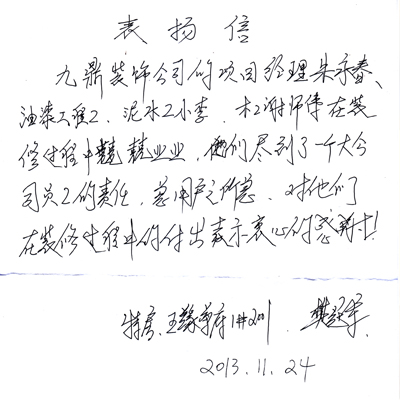 表扬信
九鼎装饰公司的项目经理朱永春、
油漆工程工、泥水工小李、木工谢师傅在装
修过程中兢兢业业,他们尽到了一个大公
司员工的责任,急用户之所急。对他们
在装修过程中的付出表示衷心的感谢!
1#2001
2013.11.24